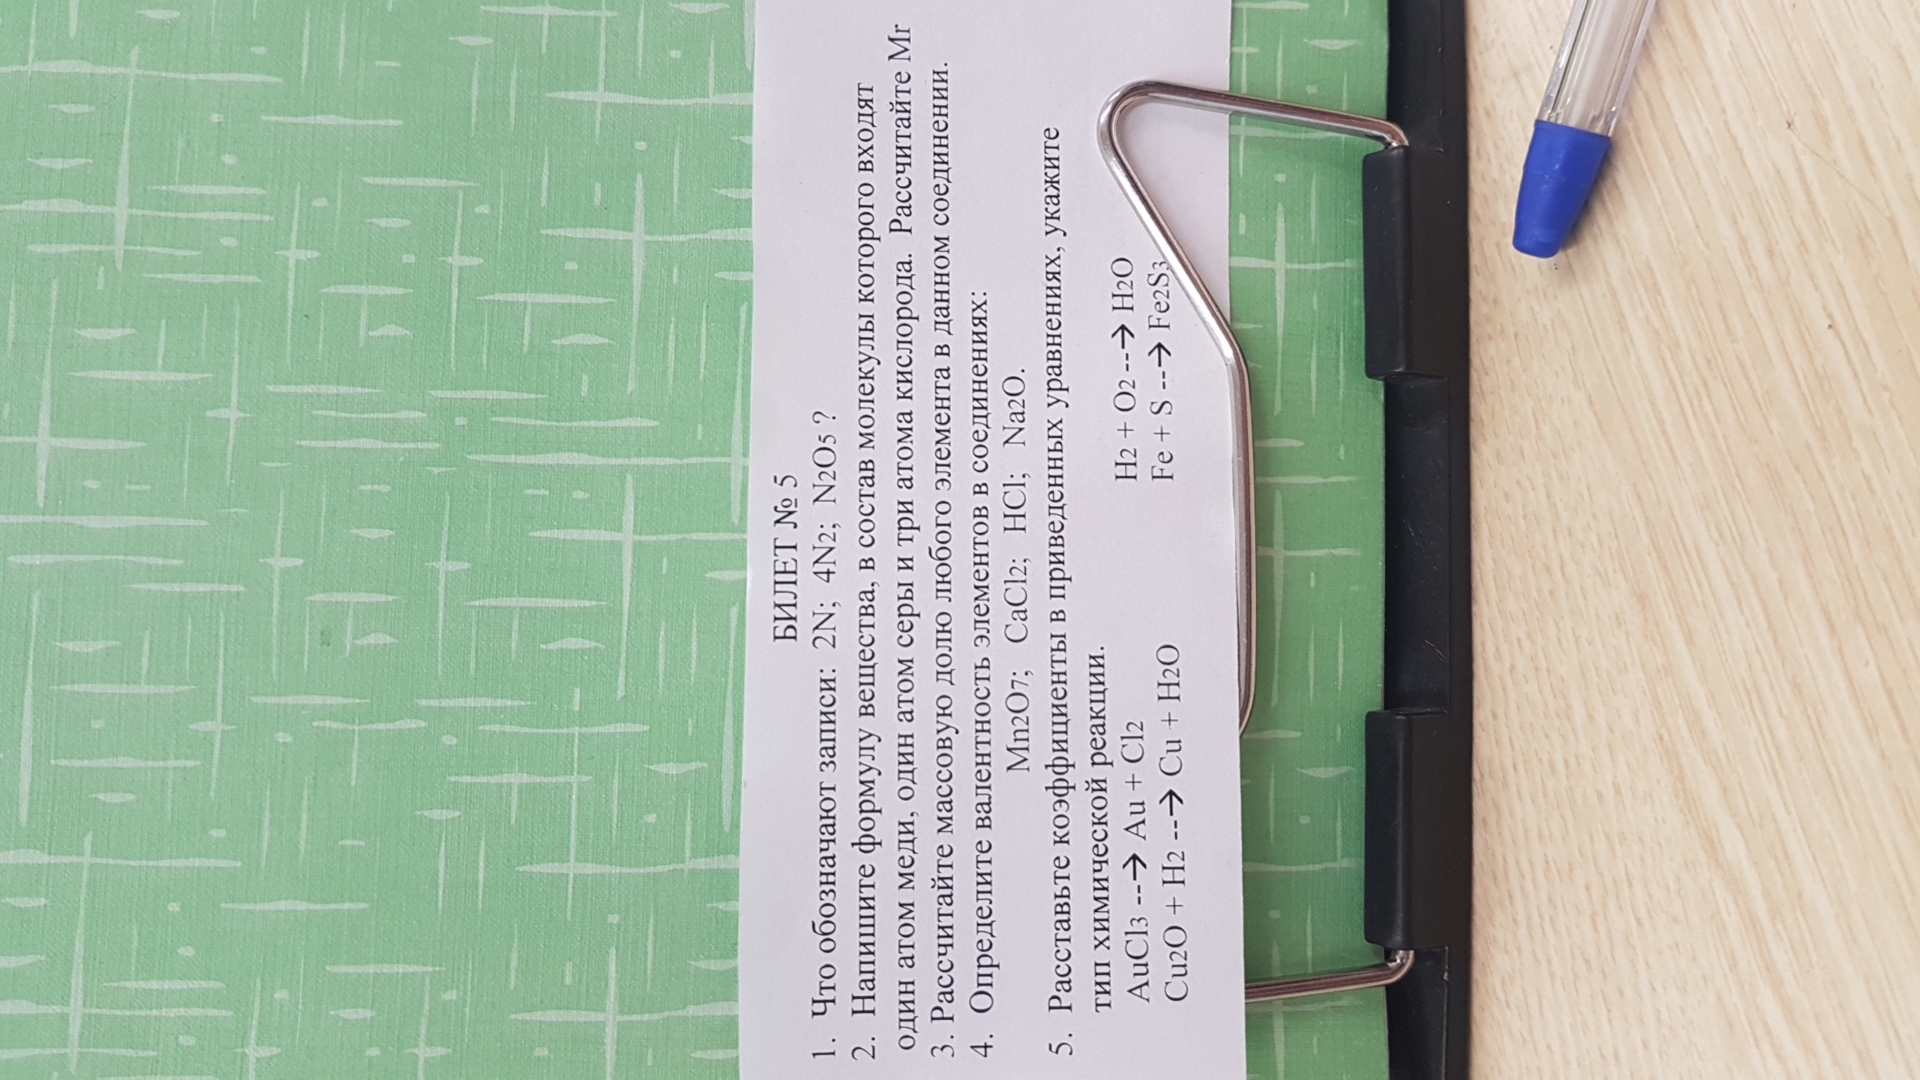 БИЛЕТ № 5
1. Что обозначают записи: 2N; 4N2; N2O5 ?
2. Напишите формулу вещества, в состав молекулы которого входят
один атом меди, один атом серы и три атома кислорода. Рассчитайте Mr
3. Рассчитайте массовую долю любого элемента в данном соединении.
4. Определите валентность элементов в соединениях:
Mn2O7; CaCl2; HCl; Na2O.
5. Расставьте коэффициенты в приведенных уравнениях, укажите
тип химической реакции.
AuCl3 --→ Au + Cl2 H2 + O2 --→ H2O
Cu2O + H2 --→ Cu + H2O Fe + S --→ Fe2S3